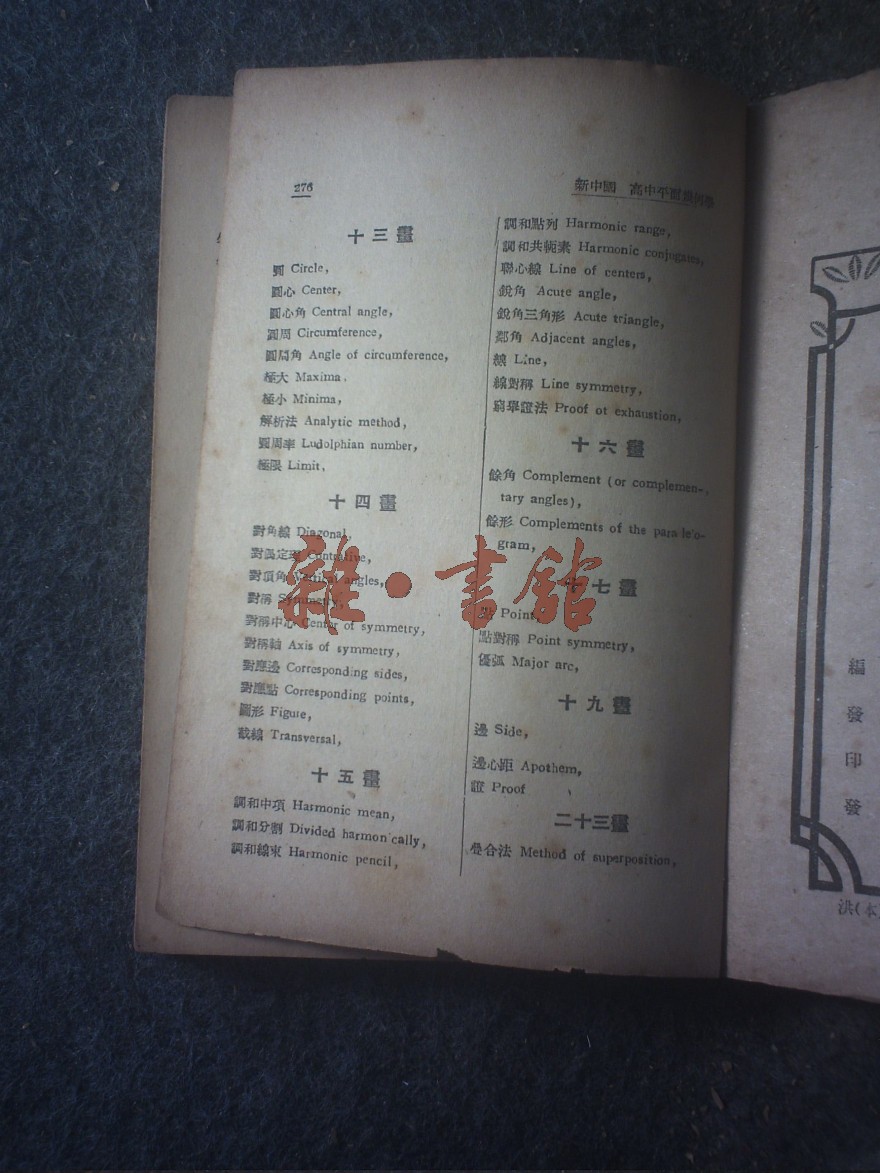 276
新中國 高中平面幾何學
十三畫
圓 Circle,
圓心 Center,
圓心角 Central angle,
圓周 Circumference,
圓周角 Angle of circumference,
極大 Maxima,
極小 Minima,
解析法 Analytic method,
圓周率 Ludolphian number,
極限 Limit,
十四畫
對角線 Diagonal,
對稱 Symmetry,
對頂角 Vertical angles,
對稱中心 Center of symmetry,
對稱軸 Axis of symmetry,
對應邊 Corresponding sides,
對應點 Corresponding points,
圖形 Figure,
截線 Transversal,
十五畫
調和中項 Harmonic mean,
調和分割 Divided harmon'cally,
調和線束 Harmonic pencil,
調和點列 Harmonic range,
調和共軛素 Harmonic conjugates,
聯心線 Line of centers,
銳角 Acute angle,
銳角三角形 Acute triangle,
鄰角 Adjacent angles,
線 Line,
線對稱 Line symmetry,
窮舉證法 Proof ot exhaustion,
十六畫
餘角 Complement (or complemen-
tary angles),
餘形 Complements of the para'le'o-
gram,
十七畫
點 Point,
點對稱 Point symmetry,
優弧 Major arc,
十九畫
邊 Side,
邊心距 Apothem,
證 Proof
二十三畫
疊合法 Method of superposition,
雜·書館
編
發
印
發
洪(本